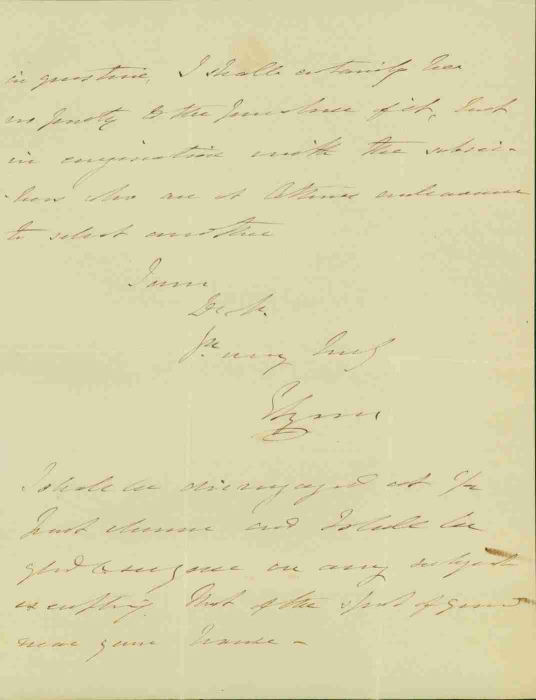 in question, I shall certainly be
no party to the purchase of it, but
in conjunction with the subscri-
bers who are at Athens endeavour
to select another
I am
Dr Sr
Yr very truly
I shall be disengaged at ½
past eleven and I shall be
glad to see you on any subject
excepting that of the spot of ground
near your house -